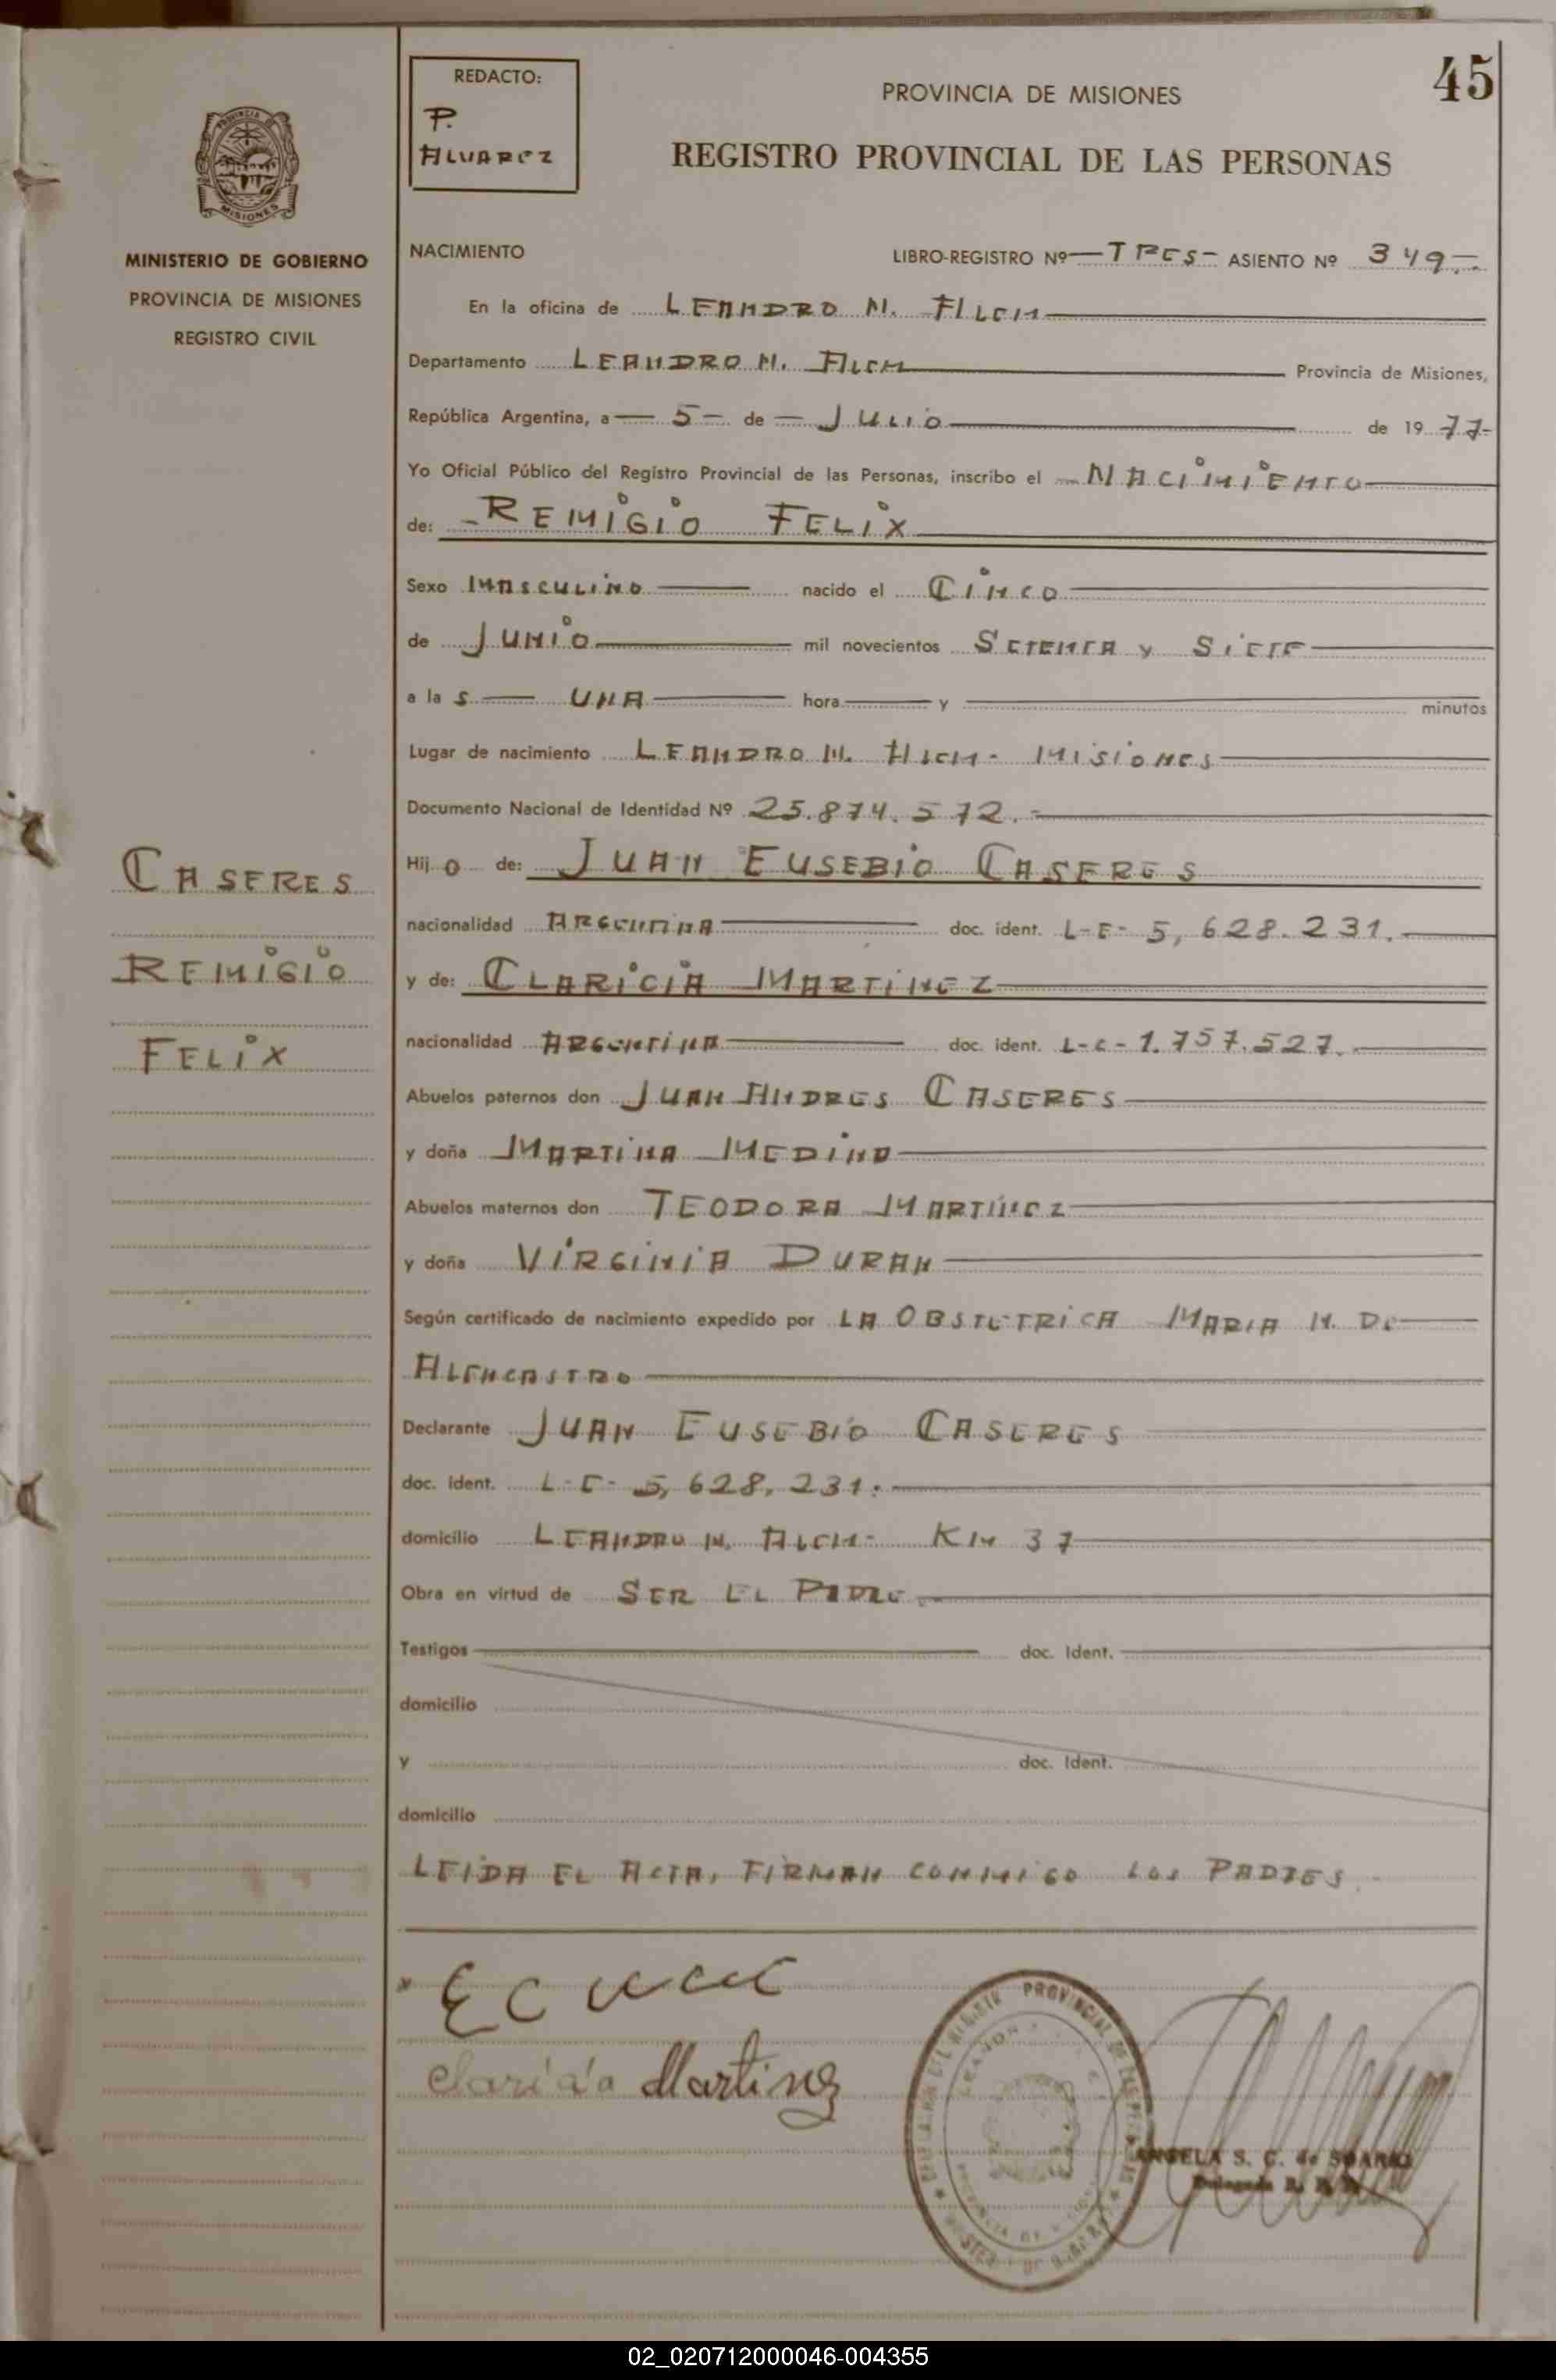 45
REDACTO:
P.
ALVAREZ
PROVINCIA DE MISIONES
REGISTRO PROVINCIAL DE LAS PERSONAS
PROVINCIA DE
MISIONES
MINISTERIO DE GOBIERNO
PROVINCIA DE MISIONES
REGISTRO CIVIL
CASERES
REMIGIO
FELIX
NACIMIENTO LIBRO-REGISTRO Nº — TRES - ASIENTO Nº 349.-
En la oficina de LEANDRO N. ALEM
Departamento LEANDRO N. ALEM Provincia de Misiones,
República Argentina, a — 5 — de — JULIO de 19 77-
Yo Oficial Público del Registro Provincial de las Personas, inscribo el NACIMIENTO
de: - REMIGIO FELIX
Sexo MASCULINO nacido el CINCO
de JUNIO mil novecientos SETENTA Y SIETE
a la s UNA hora y minutos
Lugar de nacimiento LEANDRO N. ALEM - MISIONES
Documento Nacional de Identidad Nº 25.874.572.-
Hij o de: JUAN EUSEBIO CASERES
nacionalidad ARGENTINA doc. ident. L-E- 5,628.231.
y de: CLARICIA MARTINEZ
nacionalidad ARGENTINA doc. ident. L-C- 1.757.527.
Abuelos paternos don JUAN ANDRES CASERES
y doña MARTINA MEDINA
Abuelos maternos don TEODORA MARTINEZ
y doña VIRGINIA DURAN
Según certificado de nacimiento expedido por LA OBSTETRICA MARIA N. DE
ALENCASTRO
Declarante JUAN EUSEBIO CASERES
doc. ident. L-E- 5,628,231.
domicilio LEANDRO N. ALEM - KM 37
Obra en virtud de SER EL PADRE.
Testigos doc. Ident.
domicilio
y doc. Ident.
domicilio
LEIDA EL ACTA, FIRMAN CONMIGO LOS PADRES.
Claricia Martinez
PROVINCIAL DE LAS
ANGELA S. C. de
Delegada R. P. P.
02_020712000046-004355